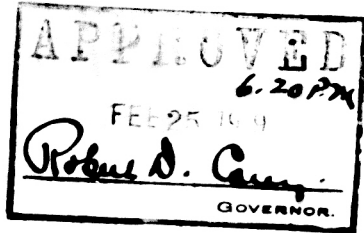 APPROVED
6.20 P.M
FEB 25 1919
Robert D. Carey.
GOVERNOR.